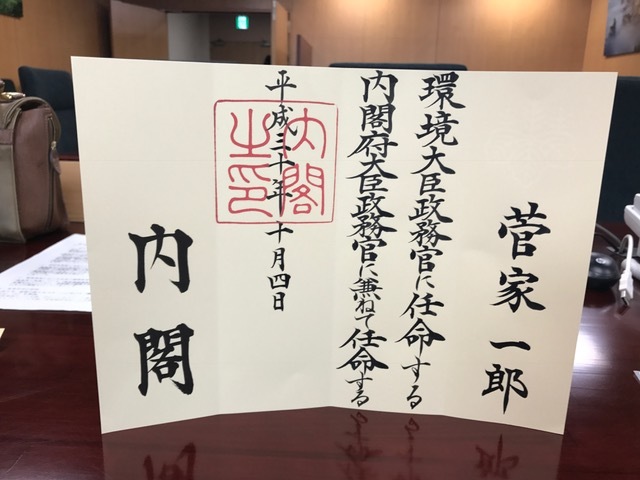 菅家一郎
環境大臣政務官に任命する
内閣府大臣政務官に兼ねて任命する
平成三十年十月四日
内閣之印
内閣